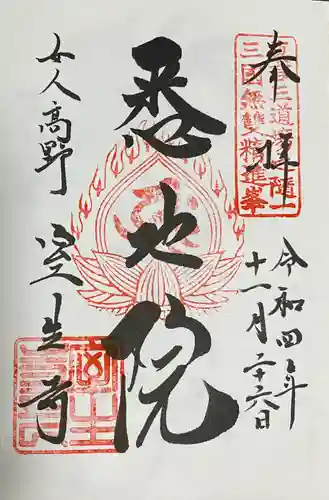 奉拝
真言三道場随一
三国無雙精進峯
令和四年
十一月二十六日
悉地院
女人高野
室生寺